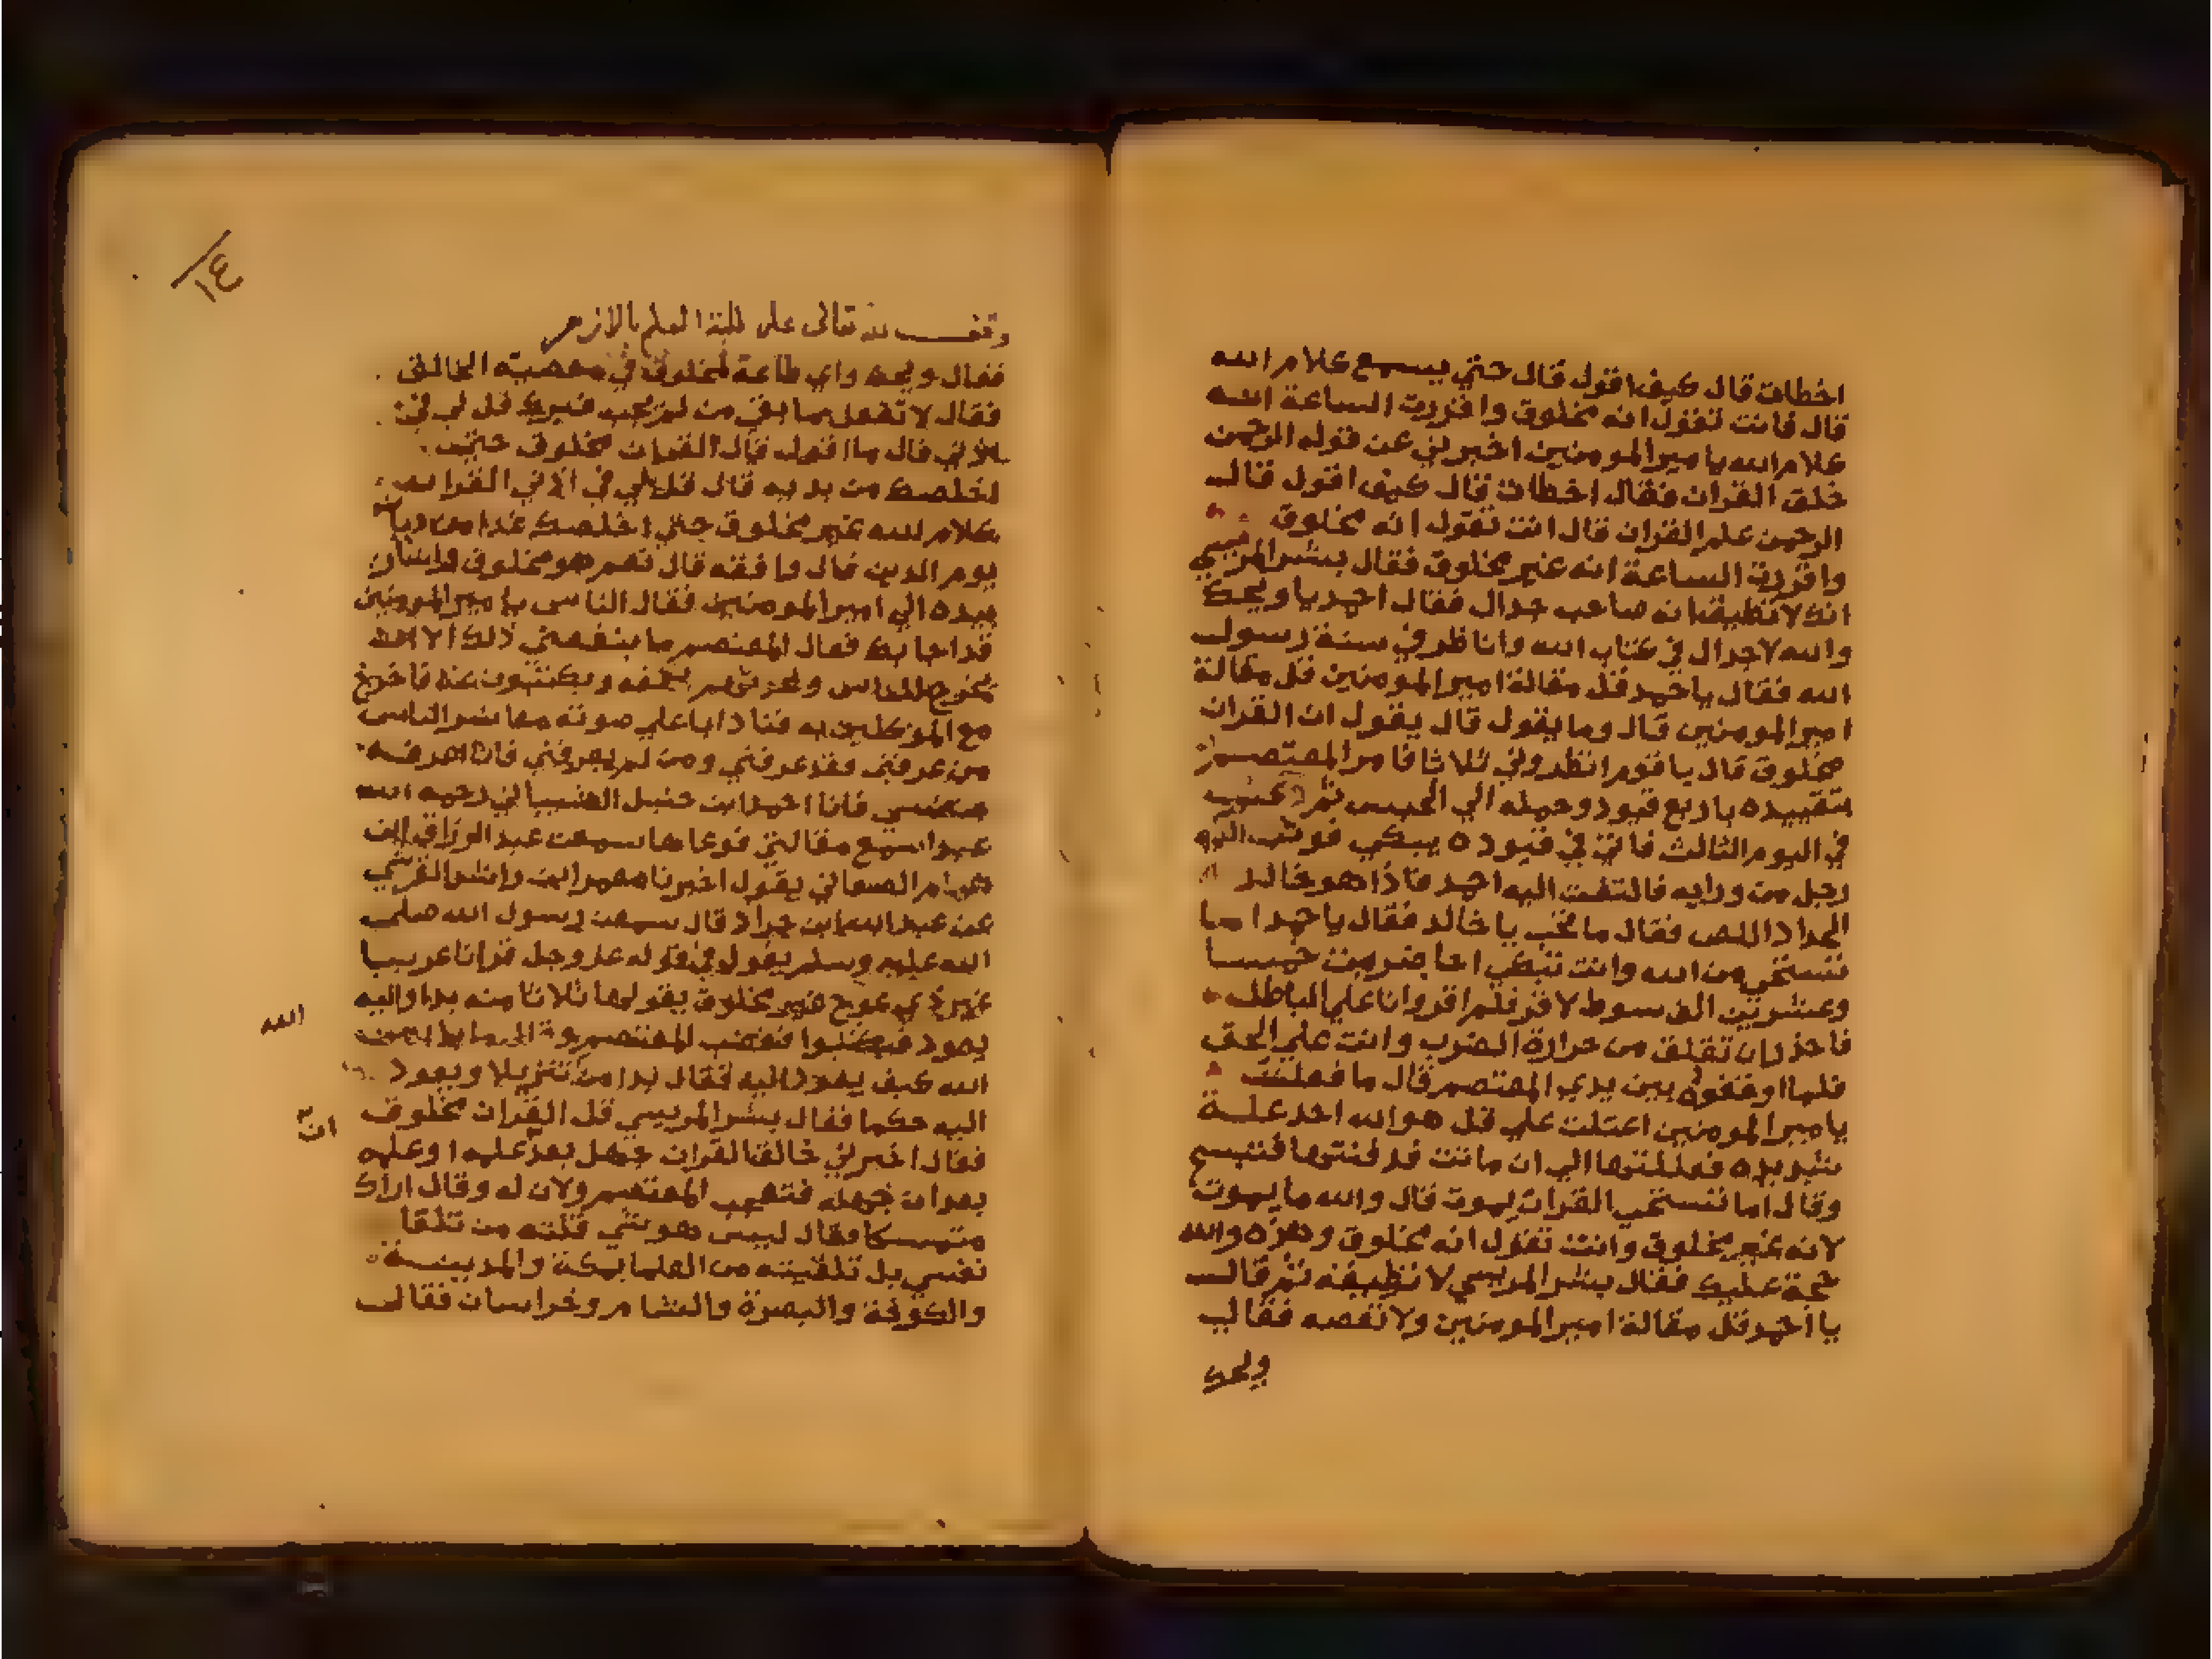 اخطات قال كيف اقول قال حتي يسمع كلام الله
قال فانت تقول انه مخلوق واقررت الساعة انه
كلام الله يا ميرالمومنين اخبرني عن قوله الرحمن
خلق القران فقال اخطات قال كيف اقول قال
الرحمن علم القران قال انت تقول انه مخلوق
واقررت الساعة انه غير مخلوق فقال بشرالمريسي
انك لا تطيقه انه صاحب جدال فقال احمد يا ويحك
والله لاجدال في كتاب الله وانا ظر في سنة رسول
الله فقال يا حمد قل مقالة اميرالمومنين قل مقالة
اميرالمومنين قال وما يقول قال يقول ان القران
مخلوق قال يا قوم انظروني ثلاثا فامر المعتصم
بتقييده باربع قيود وحمله الي الحبس ثم
في اليوم الثالث فاتي في قيوده يبكي فوثب اليه
رجل من ورايه فالتفت اليه احمد فاذا هو خالد
الحداد اللص فقال ما تحب يا خالد فقال يا حمد اما
تستحي من الله وانت تبكي انا ضربت خمسا
وعشرين الف سوط لاقر فلم اقر وانا علي الباطل
فاحذر ان تقلق من حرارة الضرب وانت علي الحق
فلما اوقفوه بين يدي المعتصم قال ما فعلت
يا ميرالمومنين اعتلت علي قل هو الله احد علة
شديده فعللتها الي ان ماتت قد فنتها فتبسم
وقال اما تستحي القران يموت قال والله ما يموت
لانه غير مخلوق وانت تقول انه مخلوق وهذه والله
حجة عليك فقال بشر المريسي لا تطيقه ثم قال
يا احمد قل مقالة اميرالمومنين ولا تعصه فقال
ويحك
١٤
وقف لله تعالى على طلبة العلم بالازهر
فقال ويحك واي طاعة لمخلوق في معصية الخالق
فقال لا تفعل ما بقي من لم يجب غيرك قل لي في
اذني قال ما اقول قال القران مخلوق حتي
اخلصك من يديه قال قل لي في اذني القران
كلام الله غير مخلوق حتي اخلصك غدا من ديان
يوم الدين قال وا فقه قال نعم هو مخلوق واشار
بيده الي اميرالمومنين فقال الناس يا ميرالمومنين
قد اجابك فقال المعتصم ما ينفعني ذلك الا انه
يخرج للناس ويكتبون عنه فاخرج
مع الموكلين به فنادا باعلي صوته معاشر الناس
من عرفني فقد عرفني ومن لم يعرفني فانا اعرفه
فانا احمد ابن حنبل الشيباني رحمه الله
عبدا سمع مقالتي فوعاها سمعت عبد الرزاق ابن
همام الصنعاني يقول اخبرنا معمر ابن راشد القرشي
عن عبدالله ابن جراد قال سمعت رسول الله صلى
الله عليه وسلم يقول في قوله عز وجل قرانا عربيا
غير ذي عوج غير مخلوق يقولها ثلاثا منه بدا واليه
يعود فغضب المعتصم وقال
الله كيف يعود اليه فقال بدا من تنزيلا ويعود
اليه حكما فقال بشر المريسي قل القران مخلوق
فقال اخبرني خالق القران جهل بعد علمه او علمه
بعد ان جهله فتعجب المعتصم ولان له وقال اراك
متمسكا فقال ليس هو شي قلته من تلقا
نفسي بل تلقيته من العلما بمكة والمدينة
والكوفة والبصرة والشام وخراسان فقال
الله
ان